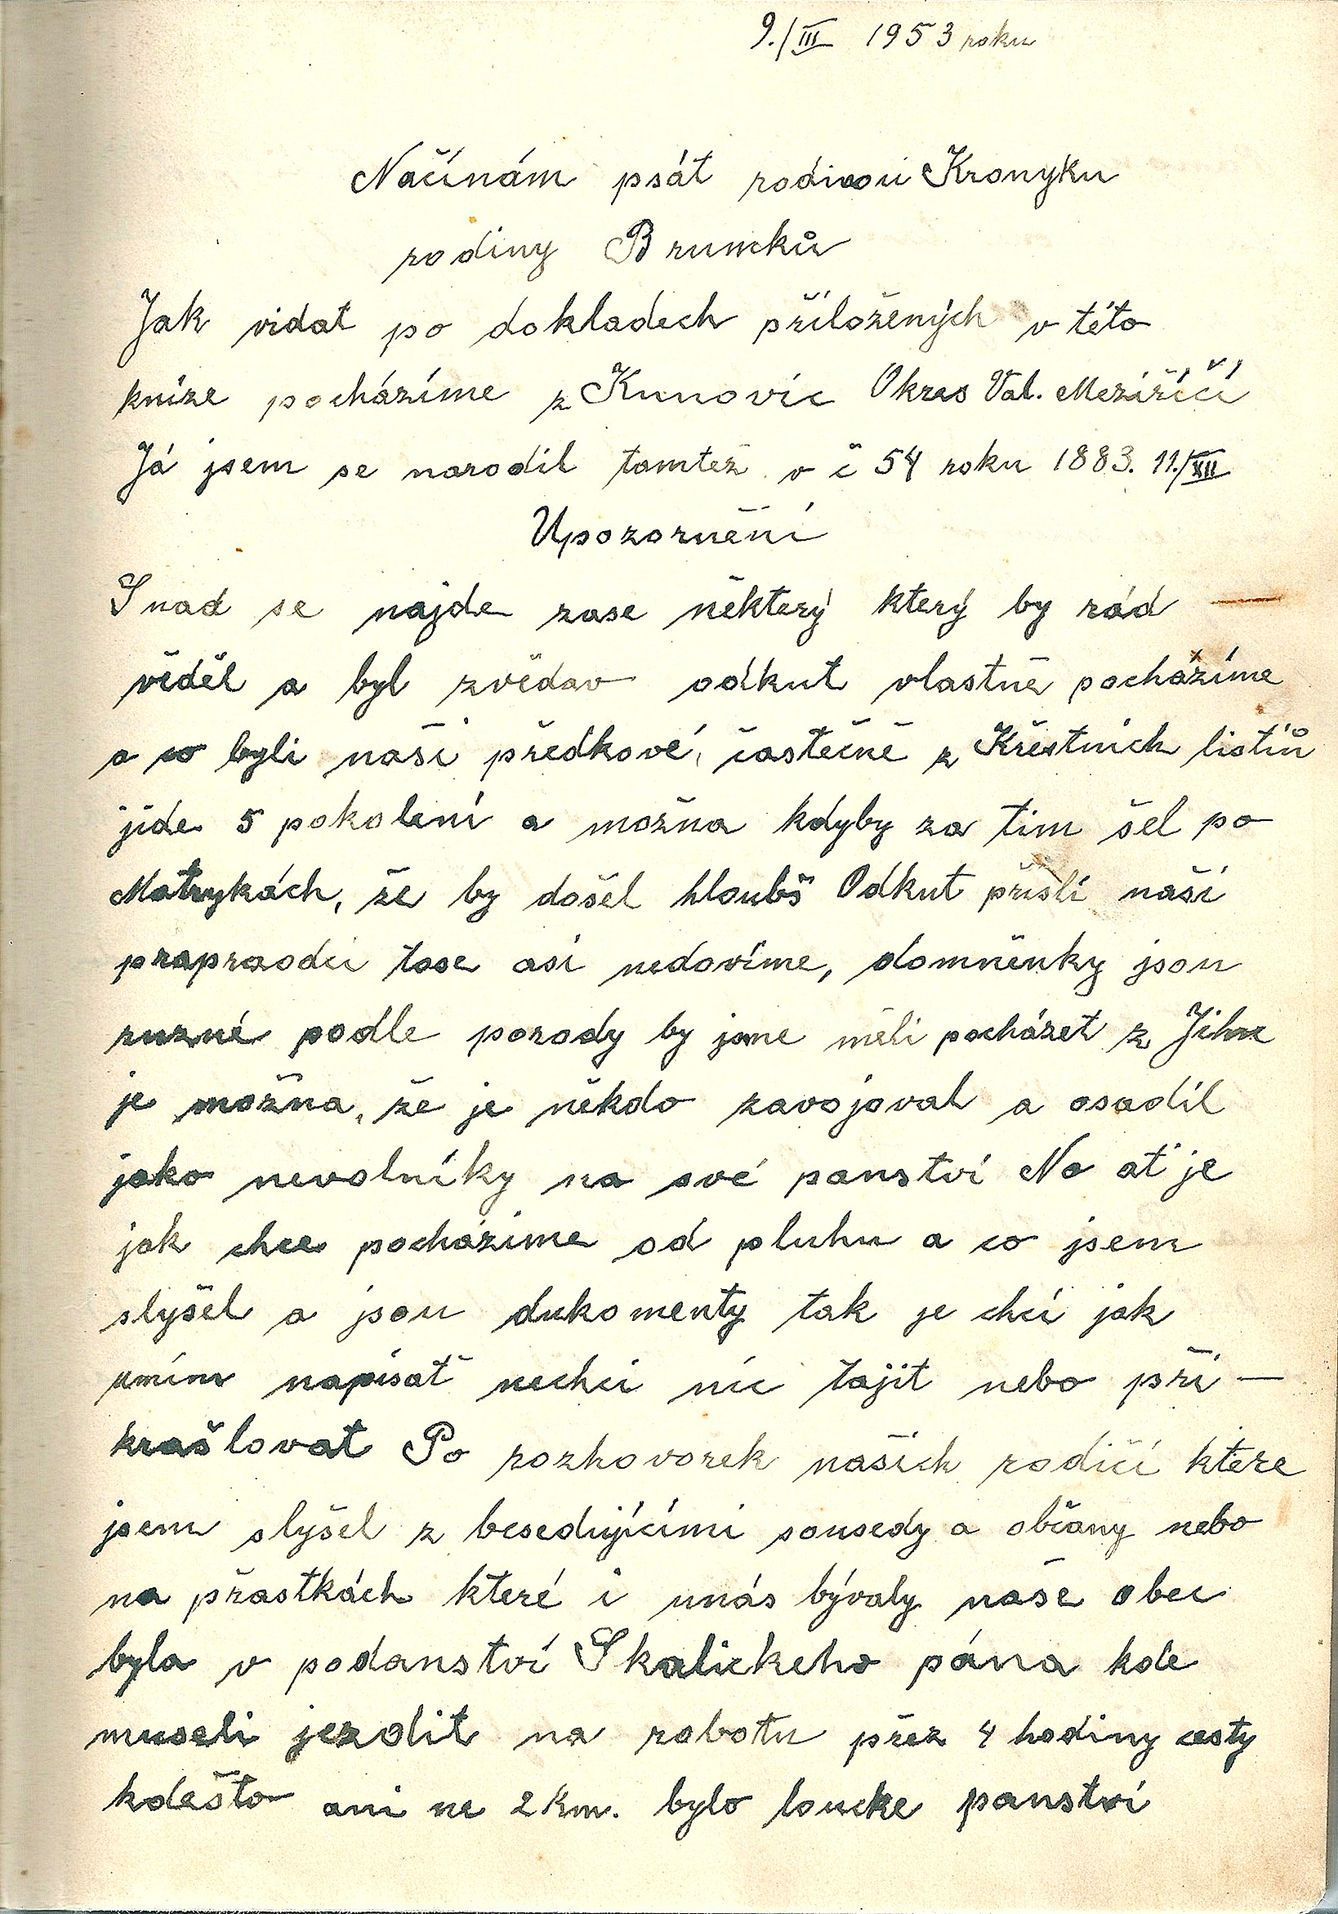 9./III 1953 roku
Načínám psát rodinou Kronyku
rodiny Brumků
Jak vidat po dokladech přiložených v této
knize pocházíme z Kunovic Okres Val. Meziříčí
Já jsem se narodil tamtež v č 54 roku 1883. 11./XII
Upozornění
Snad se najde zase některý který by rád —
věděl a byl zvědav odkut vlastně pocházíme
a co byli naši předkové, častečně z Křestních listin
jíde 5 pokolení a možna kdyby za tim šel po
Matrykách, že by došel hloubš Odkut přišli naši
prapraodci tose asi nedovíme, domněnky jsou
ruzné podle porody by jsme měli pocházet z Jihu
je možna, že je někdo zavojoval a osadil
jako nevolníky na své panství No ať je
jak chce pocházime od pluhu a co jsem
slyšel a jsou dukomenty tak je chci jak
umím napisat nechci nic tajit nebo při —
krašlovat Po rozhovorek našich rodičí ktere
jsem slyšel z besedujícími sousedy a občany nebo
na přastkách které i unás bývaly naše obec
byla v podanství Skalickeho pána kde
museli jezdit na robotu přez 4 hodiny cesty
kdešto ani ne 2 km. bylo loucke panství